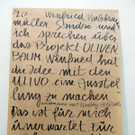 Winfried
müller Sandro und
ich sprechen über
das Projekt OLIVEN
BAUM Winfried hat
die Idee mit den
ULIVO ein Ausstel
lung zu machen
Das ist für mich
unerwartet für